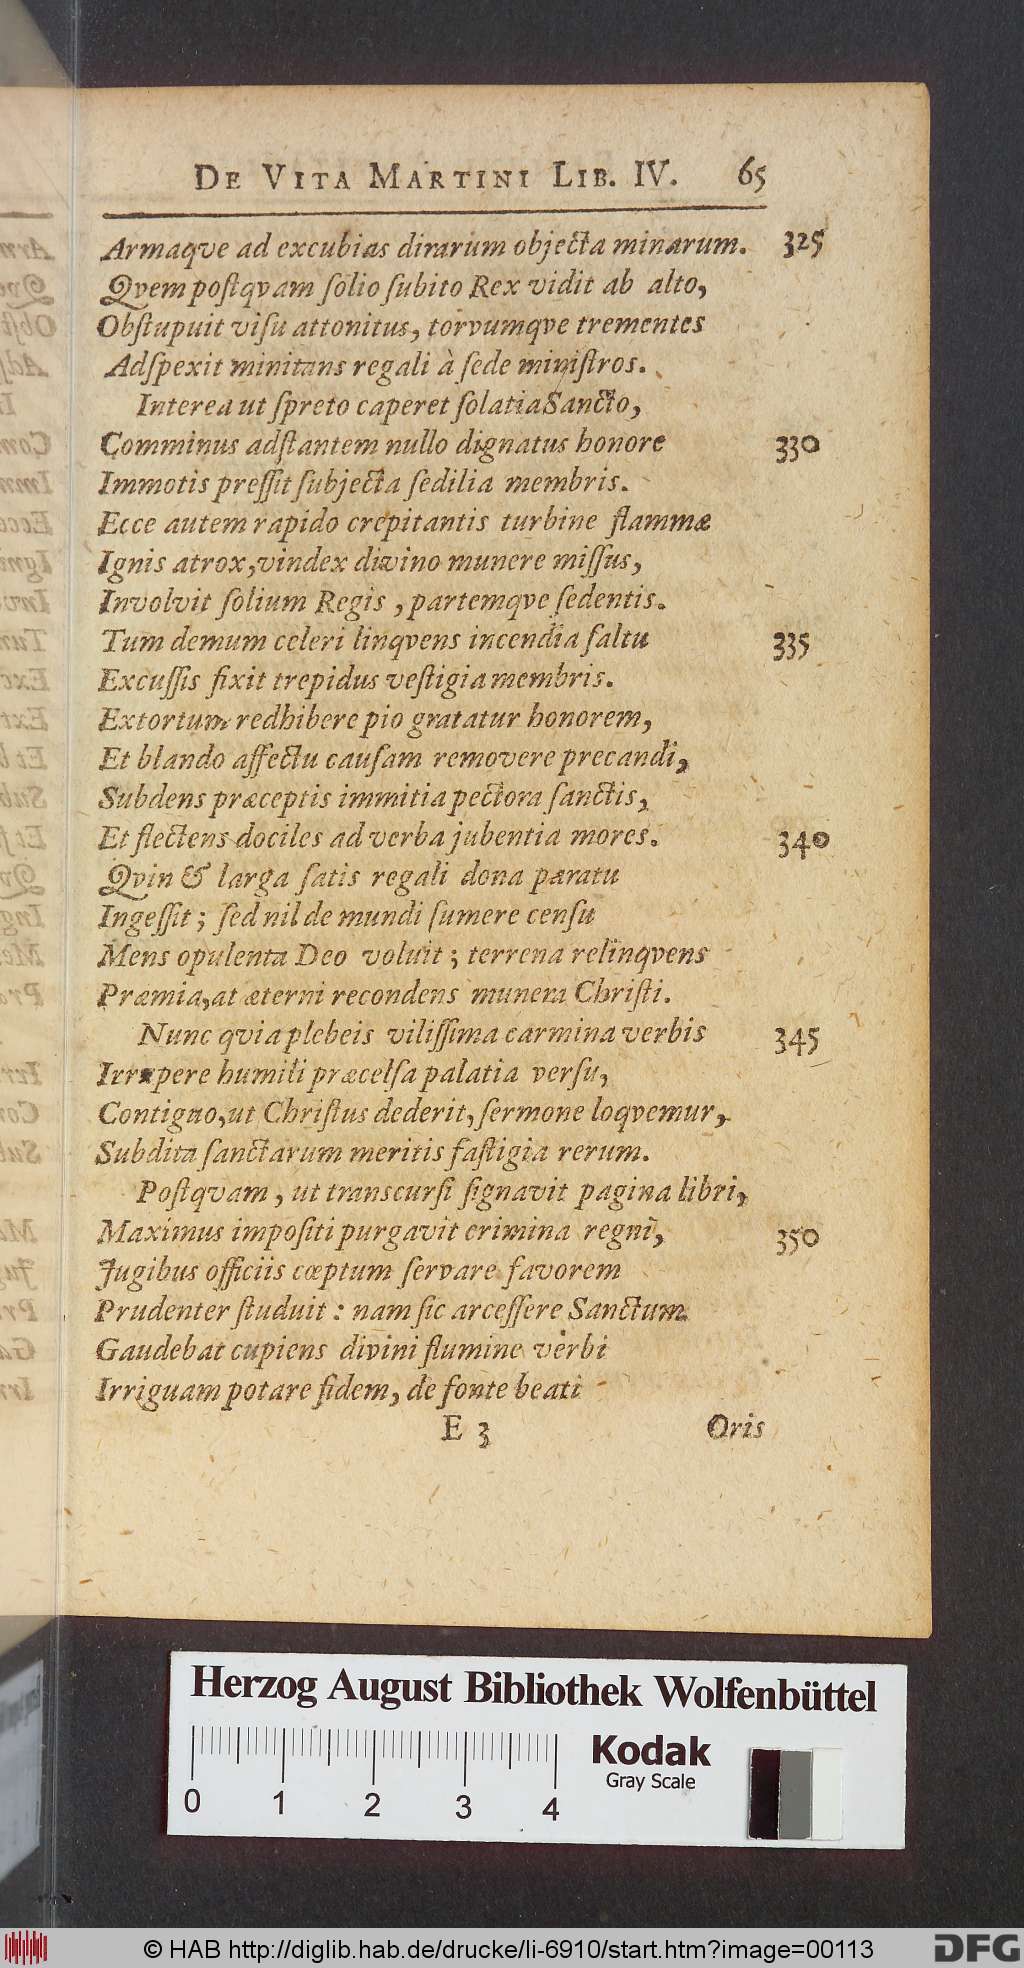 DE VITA MARTINI LIB. IV. 65
Armaqve ad excubias dirarum objecta minarum. 325
Qvem postqvam solio subito Rex vidit ab alto,
Obstupuit visu attonitus, torvumqve trementes
Adspexit minitans regali à sede ministros.
Interea ut spreto caperet solatia Sancto,
Comminus adstantem nullo dignatus honore 330
Immotis pressit subjecta sedilia membris.
Ecce autem rapido crepitantis turbine flammæ
Ignis atrox, vindex divino munere missus,
Involvit solium Regis, partemqve sedentis.
Tum demum celeri linqvens incendia saltu 335
Excussis fixit trepidus vestigia membris.
Extortum redhibere pio gratatur honorem,
Et blando affectu causam removere precandi,
Subdens præceptis immitia pectora sanctis,
Et flectens dociles ad verba jubentia mores. 340
Qvin & larga satis regali dona paratu
Ingessit; sed nil de mundi sumere censu
Mens opulenta Deo voluit; terrena relinqvens
Præmia, at æterni recondens munera Christi.
Nunc qvia plebeis vilissima carmina verbis 345
Irrepere humili præcelsa palatia versu,
Contiguo, ut Christus dederit, sermone loqvemur,
Subdita sanctarum meritis fastigia rerum.
Postqvam, ut transcursi signavit pagina libri,
Maximus impositi purgavit crimina regni, 350
Jugibus officiis cœptum servare favorem
Prudenter studuit: nam sic arcessere Sanctum
Gaudebat cupiens divini flumine verbi
Irriguam potare fidem, de fonte beati
E 3 Oris
Herzog August Bibliothek Wolfenbüttel
0 1 2 3 4
Kodak
Gray Scale
© HAB http://diglib.hab.de/drucke/li-6910/start.htm?image=00113
DFG